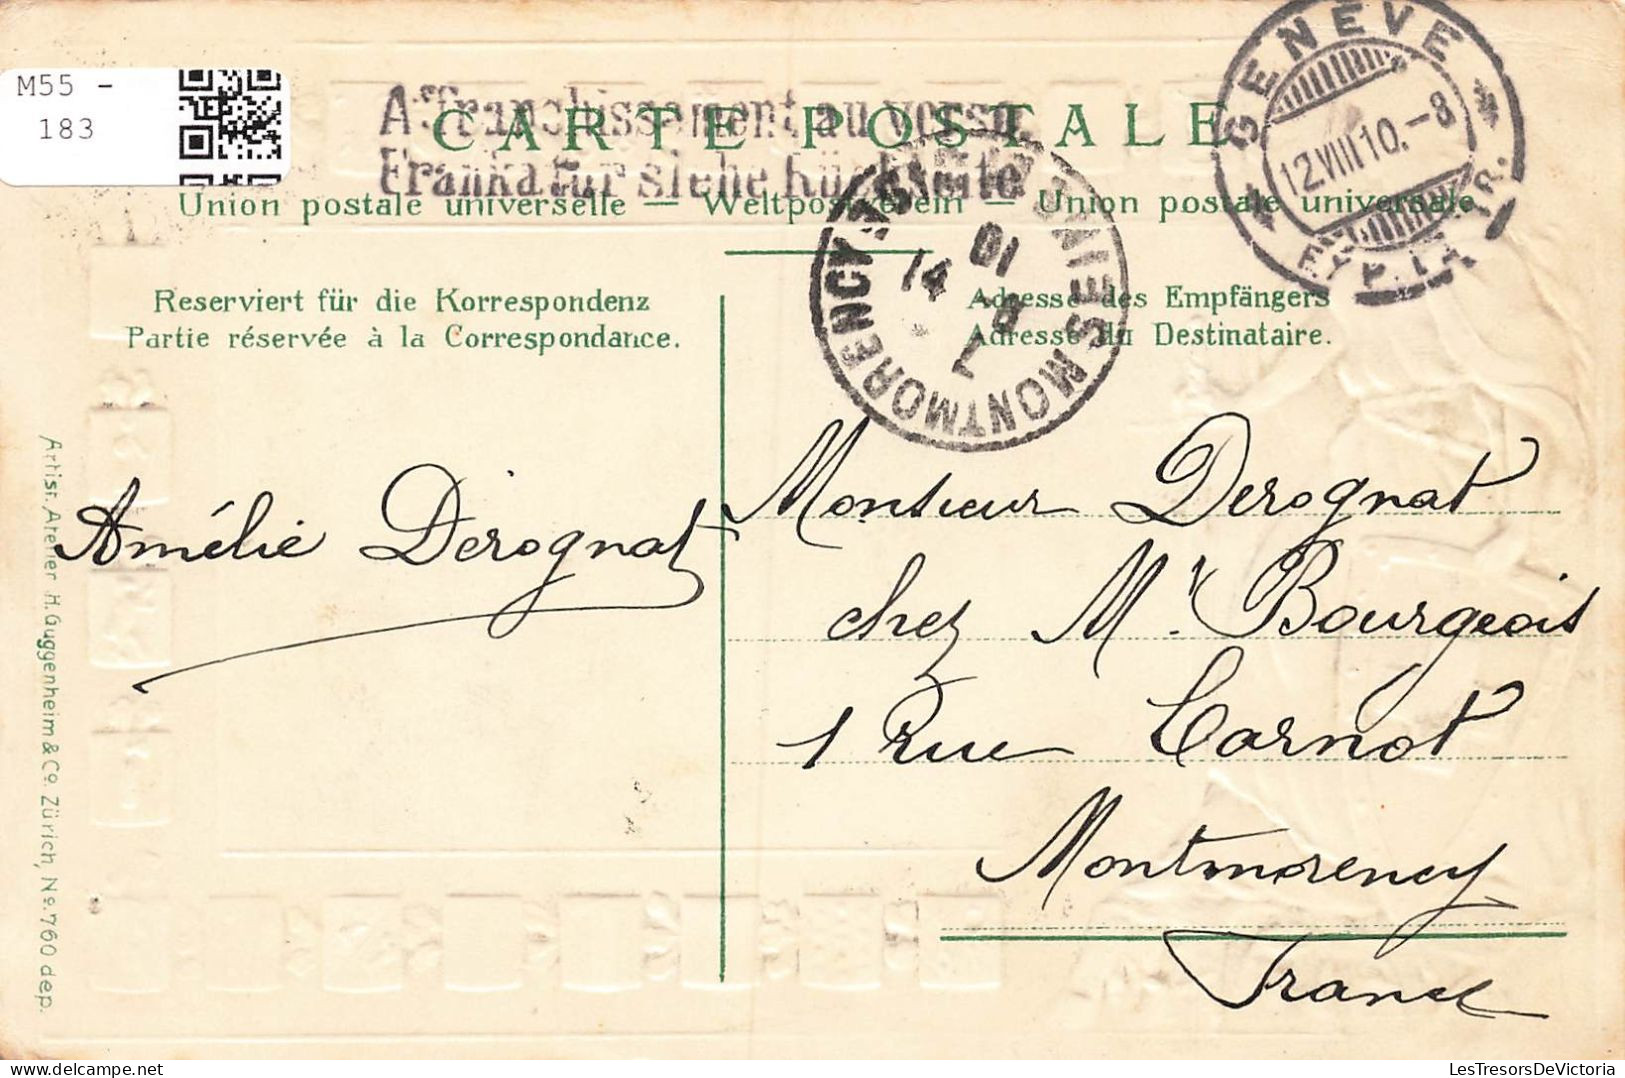 M55 -
183
CARTE POSTALE
Affranchissement au verso.
Frankatur siehe Rückseite
Union postale universelle — Weltpostverein — Union postale universale
GENÈVE
12.VIII 10. - 8
14
8
10
MONTMORENCY
Reserviert für die Korrespondenz
Partie réservée à la Correspondance.
Adresse des Empfängers
Adresse du Destinataire.
Amélie Dérognat
Monsieur Derognat
chez Mr. Bourgeois
1 Rue Carnot
Montmorency
France
Artist. Atelier H. Guggenheim & Co. Zürich, No. 760 dep.
LesTresorsDeVictoria